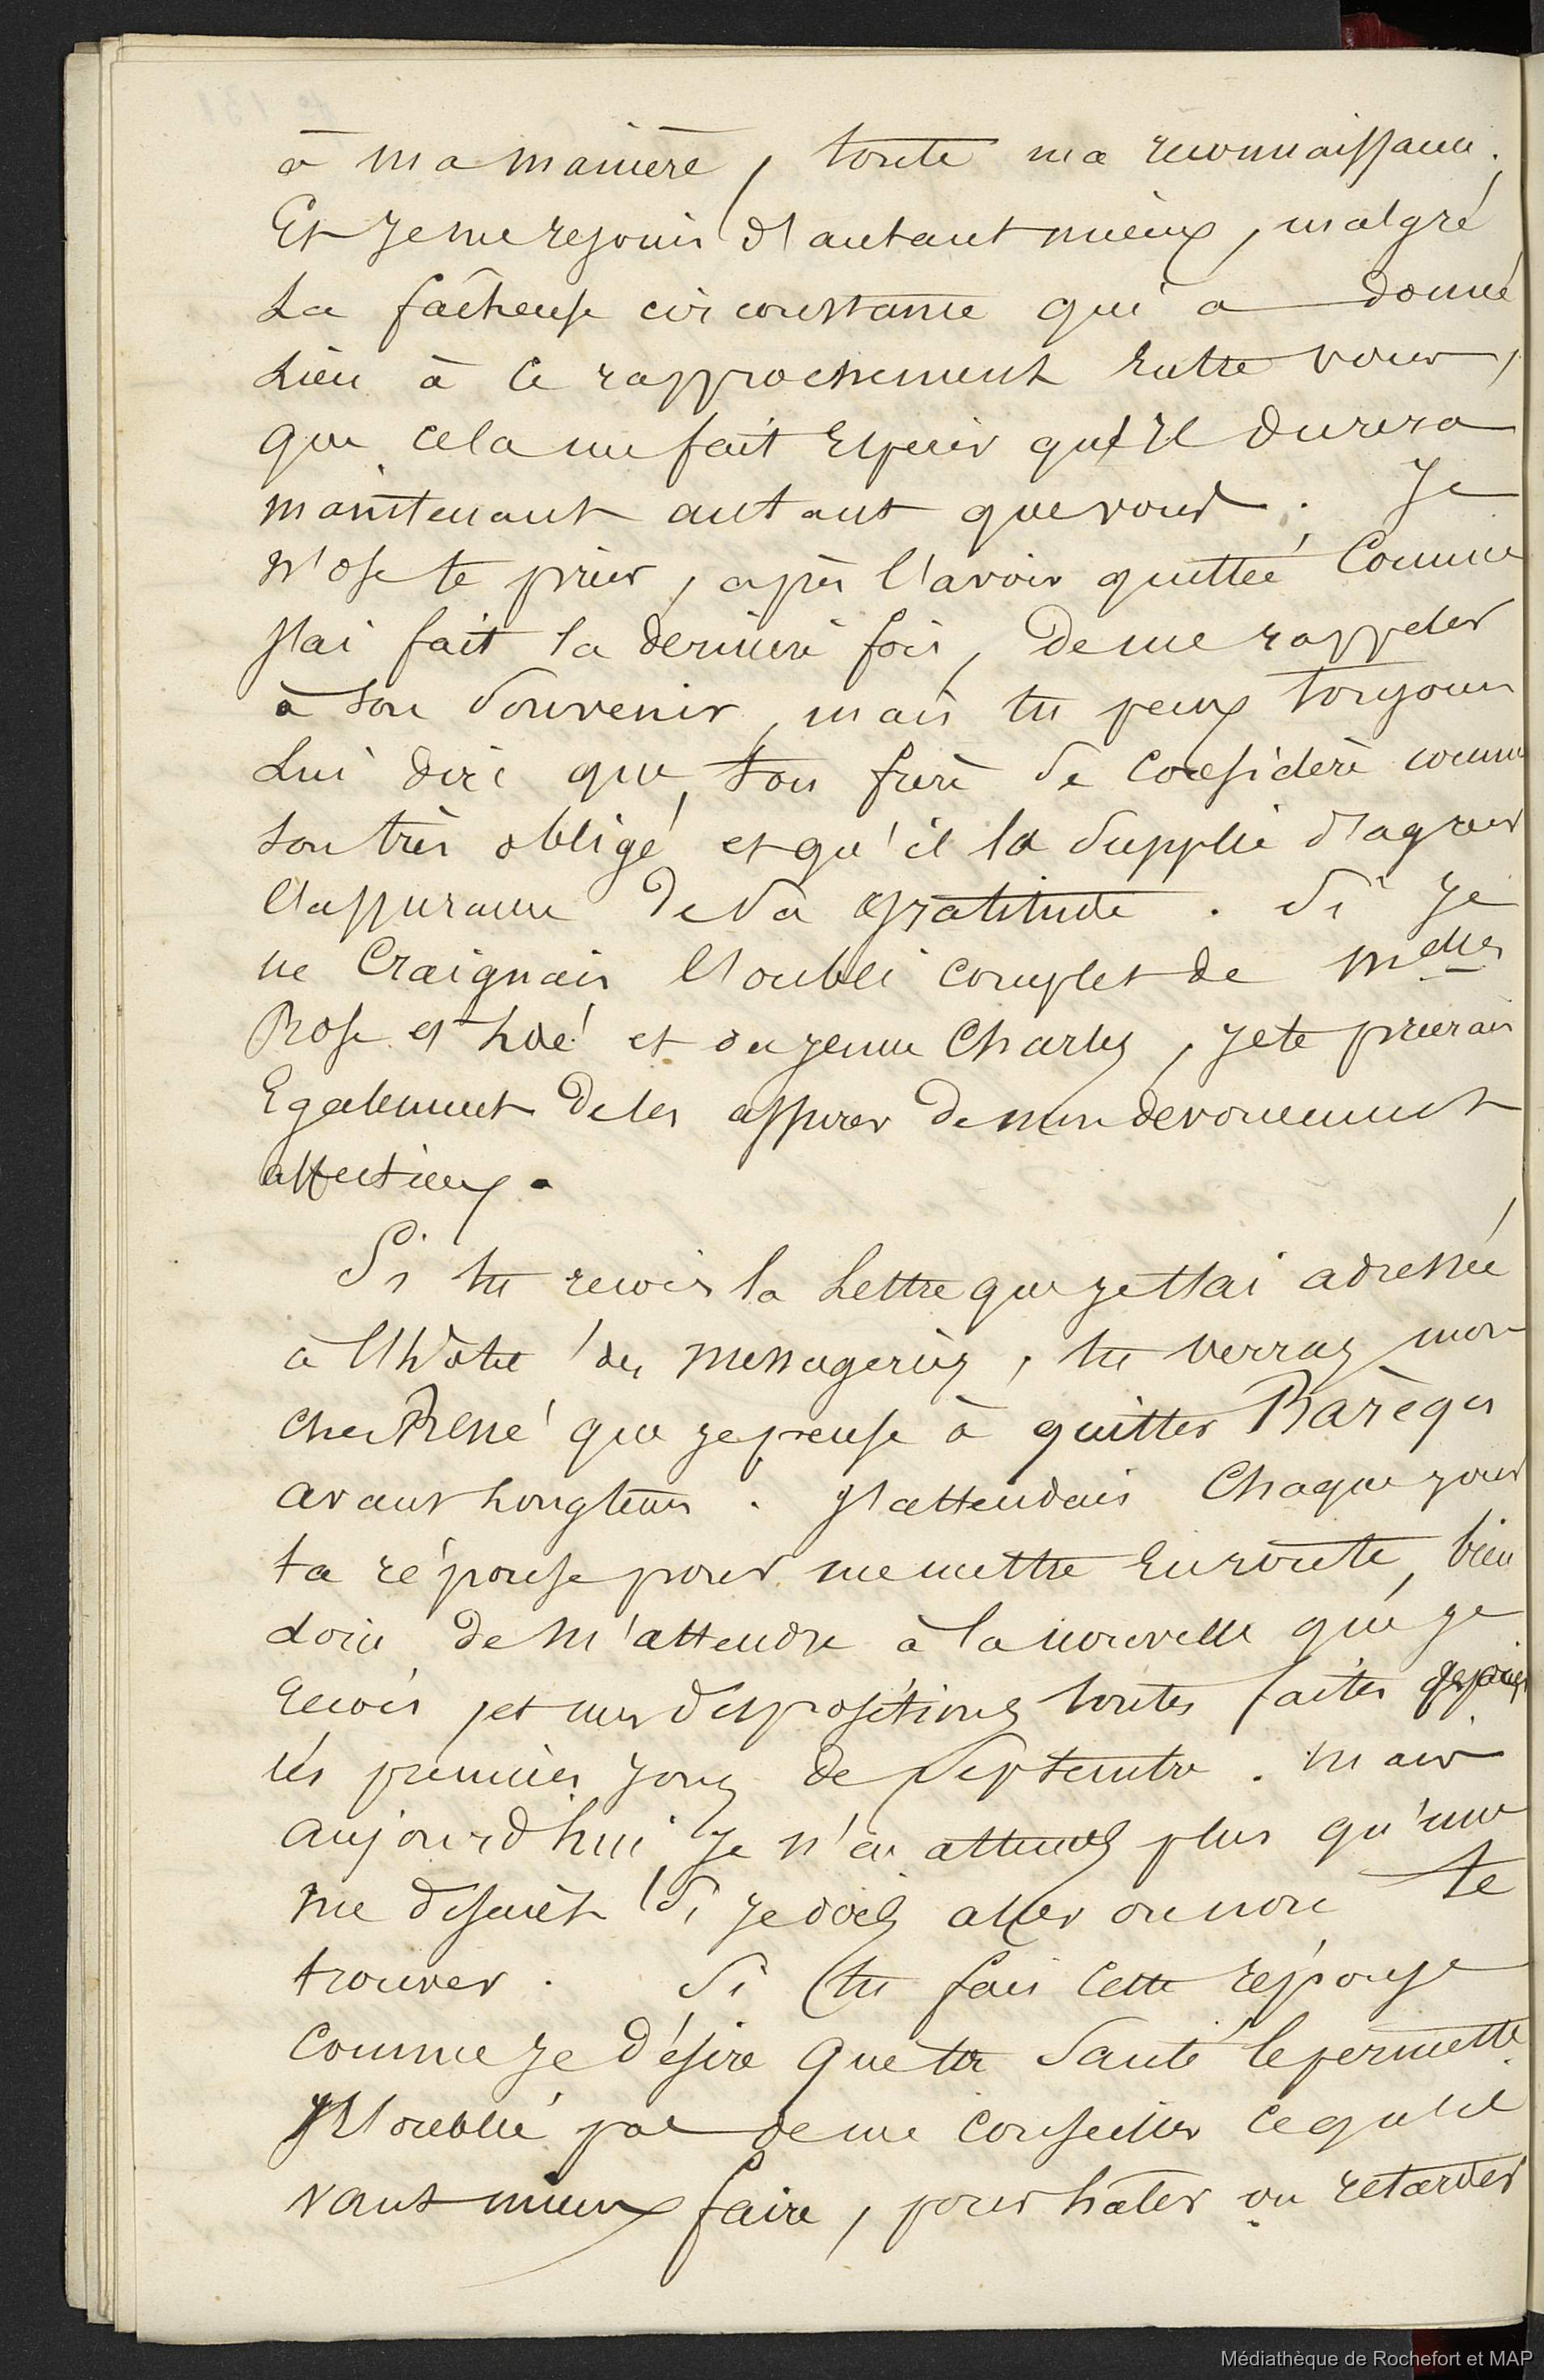 à ma manière, toute ma reconnaissance.
Et je me réjouis d'autant mieux, malgré
la fâcheuse circonstance qui a donné
lieu à ce rapprochement entre vous,
que cela me fait espérer qu'il durera
maintenant autant que vous. Je
n'ose te prier, après l'avoir quittée comme
j'ai fait la dernière fois, de me rappeler
à son souvenir, mais tu peux toujours
lui dire que ton frère se considère comme
son très obligé et qu'il la supplie d'agréer
l'assurance de sa gratitude. Si je
ne craignais l'oubli complet de Melles
Rose et et du jeune Charles, je te prierais
également de les assurer de mon dévouement
affectueux.
Si tu reçois la lettre que je t'ai adressée
à l'hôtel des messageries, tu verras mon
cher René que je pense à quitter Barèges
avant longtems. J'attendais chaque jour
ta réponse pour me mettre en route, bien
loin de m'attendre à la nouvelle que je
reçois, et mes dispositions toutes faites
les premiers jours de Septembre. Mais
aujourd'hui je n'en attends plus qu'une
me disant si je dois aller ou non te
trouver. Si tu fais cette réponse
comme je désire que ta santé le permette
N'oublie pas de me conseiller ce qu'il
vaut mieux faire, pour hâter ou retarder
Médiathèque de Rochefort et MAP